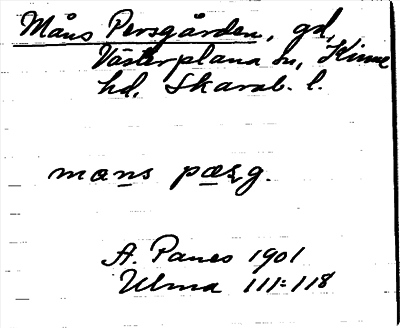 Måns Persgården, gd,
Västerplana sn, Kinne
hd, Skarab. l.
mans pærg.
A. Panes 1901
Ulma 111:118